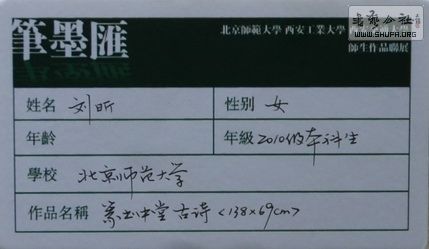 書藝公社
WWW.SHUFA.ORG
筆墨匯
北京師範大學 西安工業大學
師生作品聯展
姓名 刘昕 性别 女
年齡 年級 2010级本科生
學校 北京师范大学
作品名稱 篆书中堂 古诗 <138×69cm>